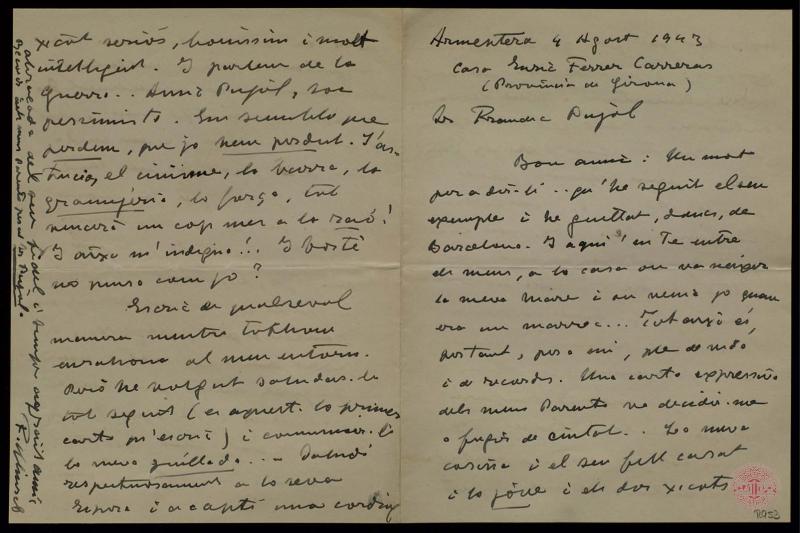 Armentera 4 Agost 1943
Casa Enric Ferrer Carreras
(Província de Girona)
Sr. Francesc Pujol
Bon amic: Un mot
per a dir-li.. qu'he seguit el seu
exemple i he guillat, doncs, de
Barcelona. I aquí 'm té entre
els meus, a la casa on va néixer
la meva mare i on venia jo quan
era un marrec... Tot això és,
portant, per a mi, ple de vida
i de records. Una carta expressiva
dels meus Parents va decidir-me
a fugir de ciutat.. La meva
cosina i el seu fill casat
i la jove i els dos xicots
xicot seriós, boníssim i molt
intelligent. I parlem de la
Guerra.. Amic Pujol, soc
pessimista. Em sembla que
perdem, que ja hem perdut. L'as-
túcia, el cinisme, la barra, la
la força, tot
vencerà un cop mes a la raó!
I això m'indigna!.. I vostè
no pensa com jo?
Escric de qualsevol
manera mentre tothom
enrahona al meu entorn.
Però he volgut saludar-lo
tot seguit (es aquest la primera
carta qu'escric) i comunicar-li
la meva guillada... Saludi
respectuosament a la seva
Esposa i accepti una cordial
abraçada del seu fidel i sempre agraït amic
R953